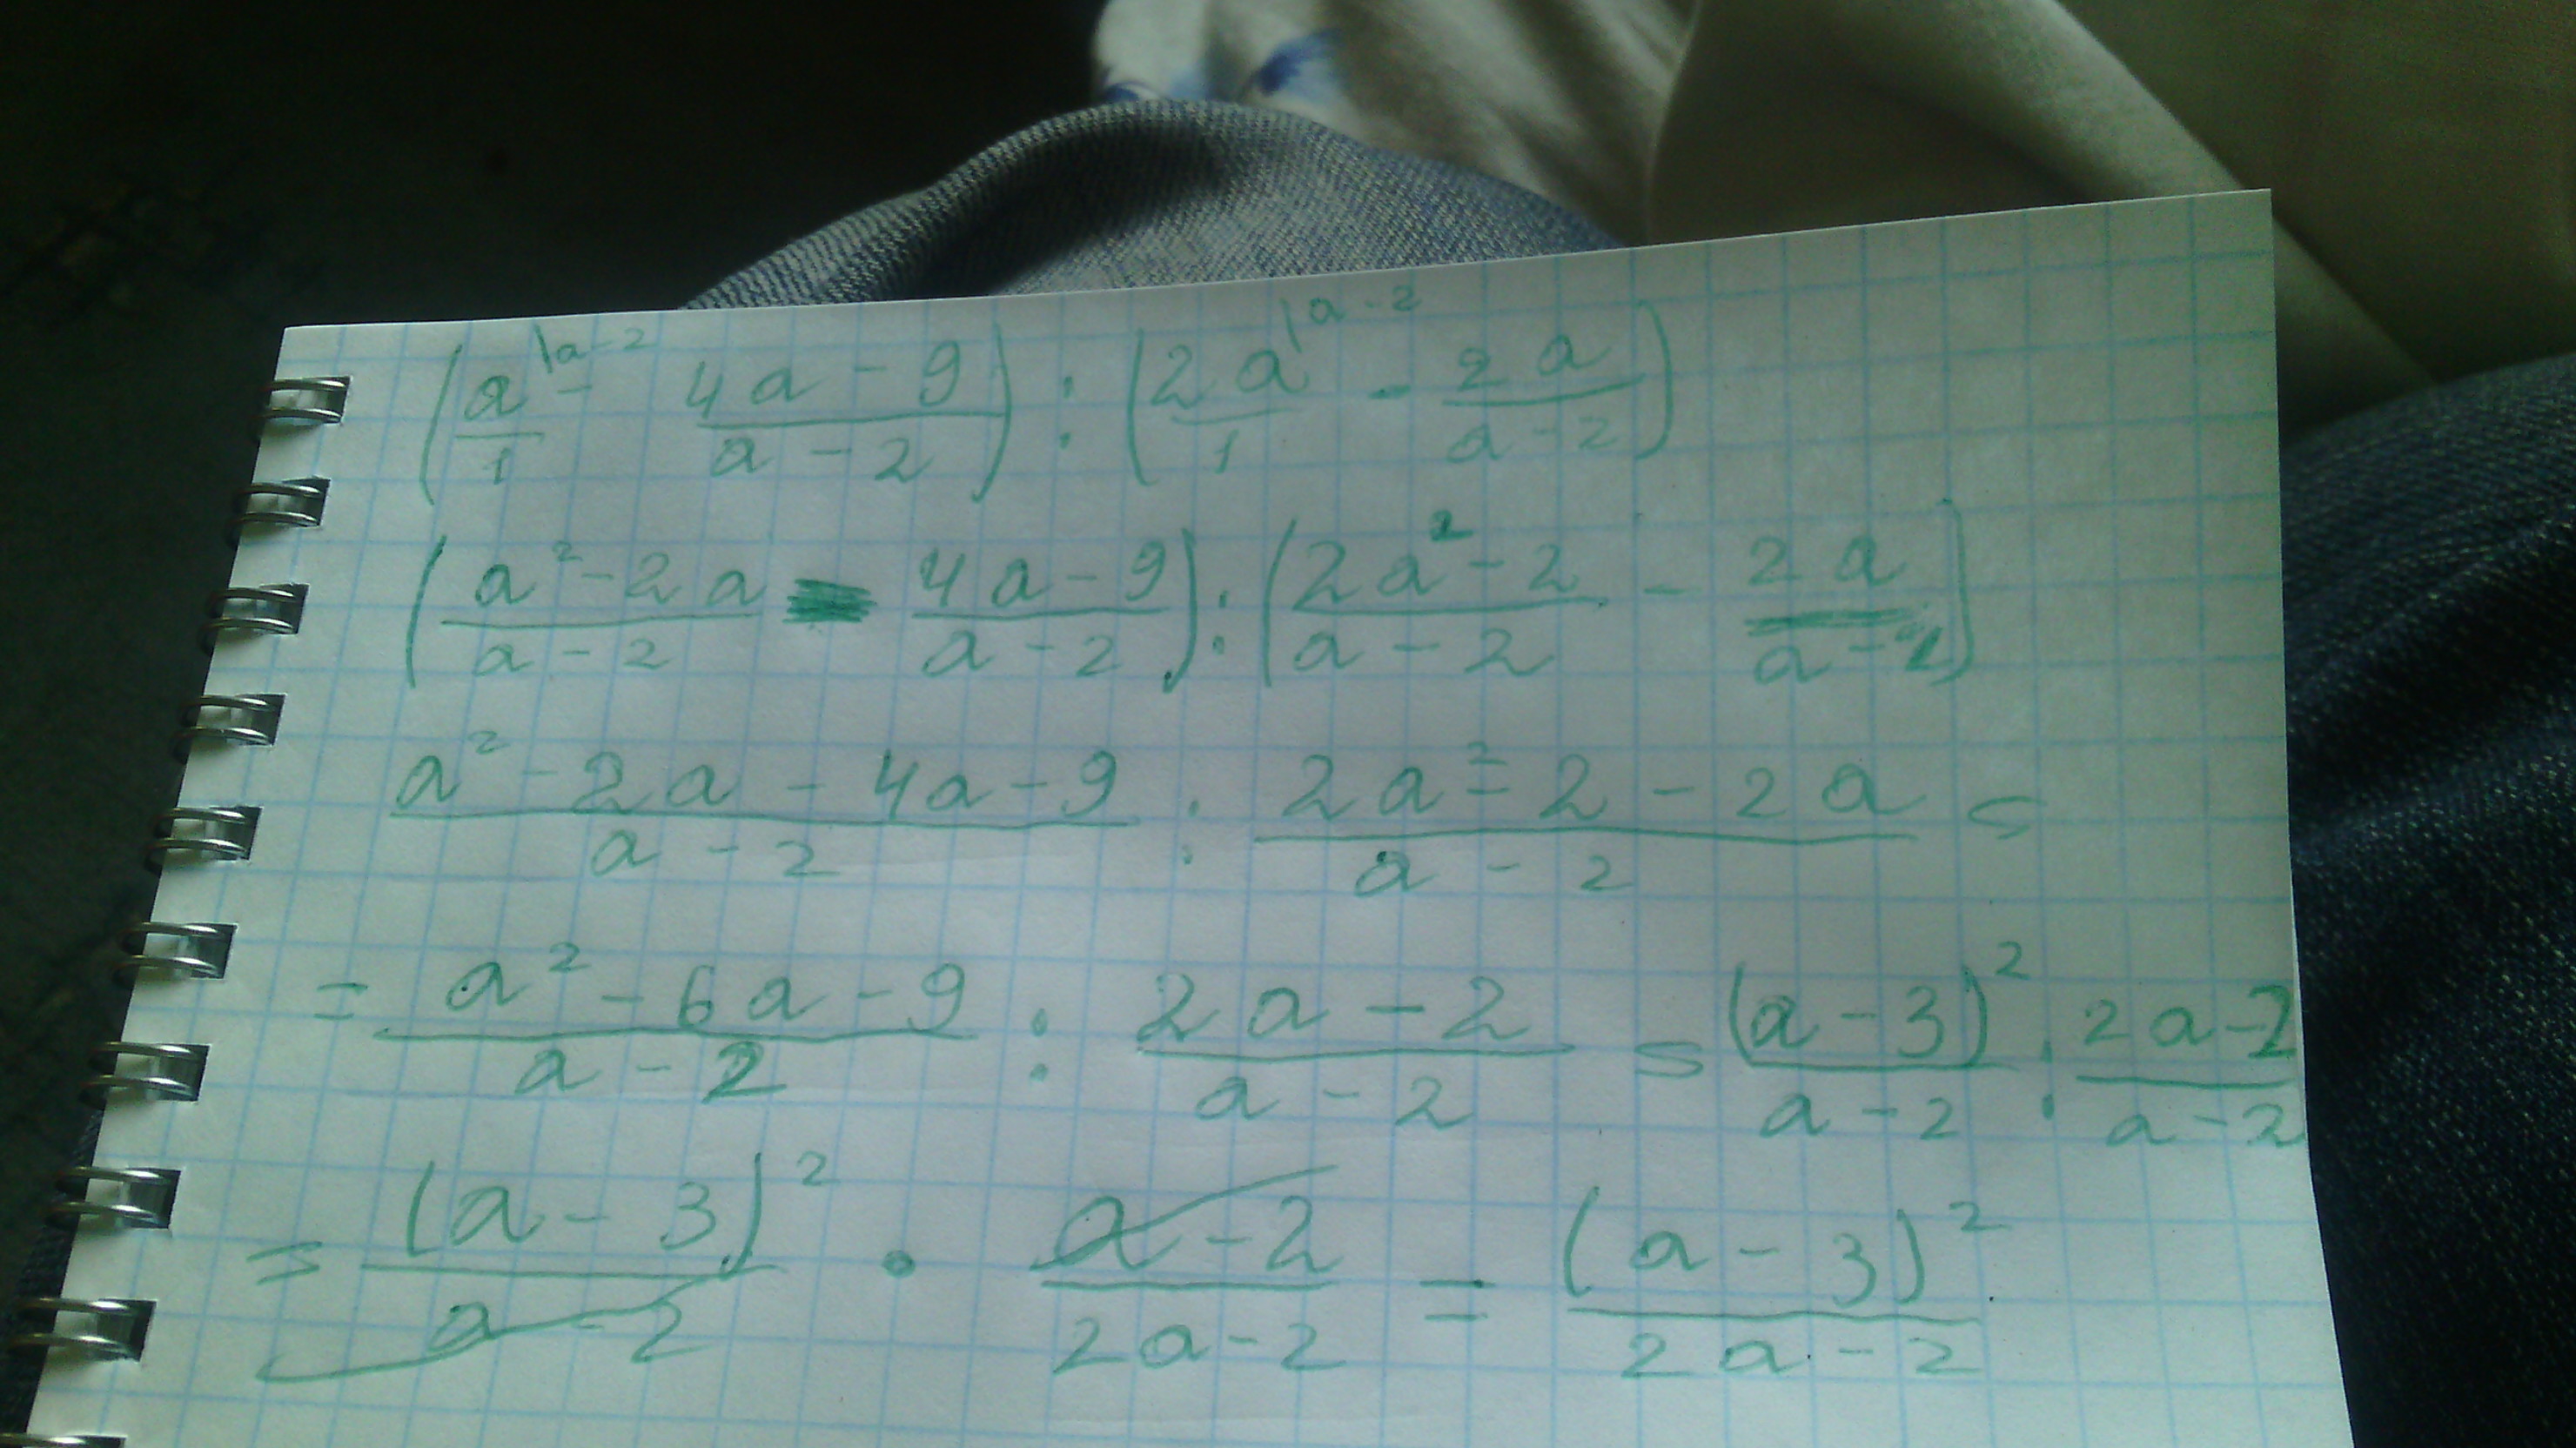 (a/1 \a-2 - (4a-9)/(a-2)) : (2a/1 \a-2 - 2a/(a-2))
((a²-2a)/(a-2) - (4a-9)/(a-2)) : ((2a²-2)/(a-2) - 2a/(a-2))
(a²-2a-4a-9)/(a-2) : (2a²-2-2a)/(a-2) =
= (a²-6a-9)/(a-2) : (2a-2)/(a-2) = (a-3)²/(a-2) : (2a-2)/(a-2)
= (a-3)²/(a-2) · (a-2)/(2a-2) = (a-3)²/(2a-2)